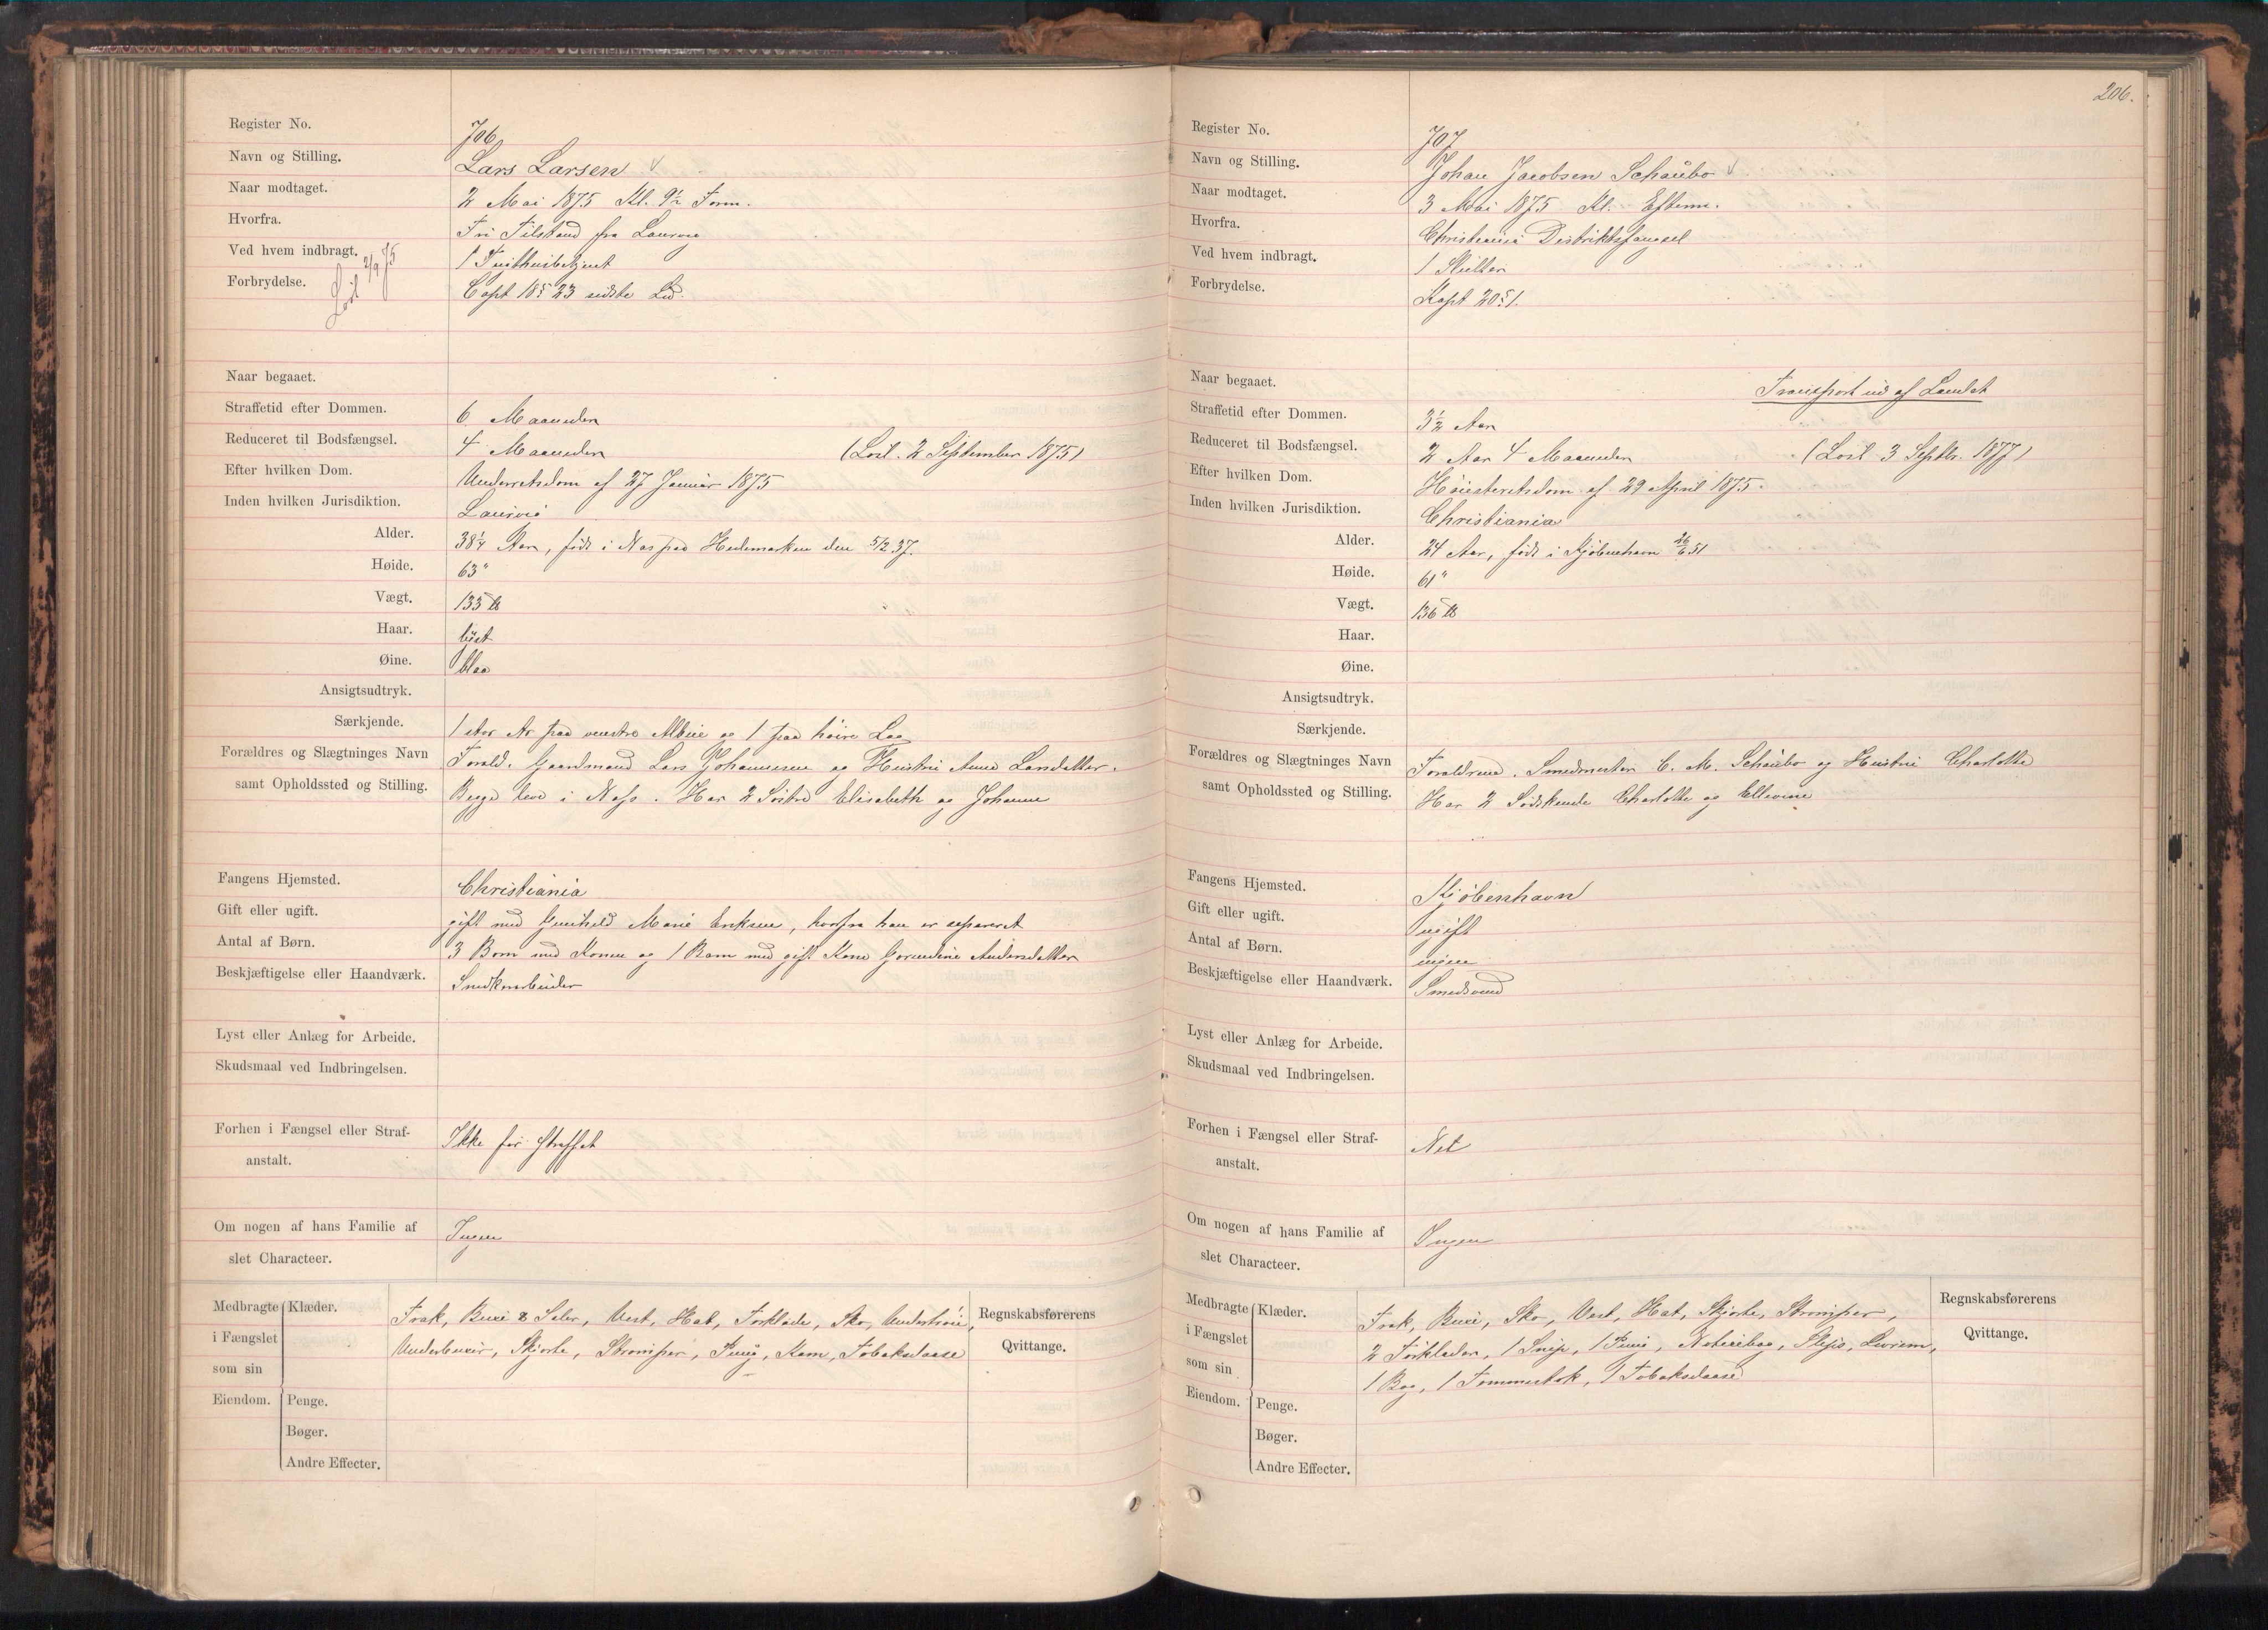 Register No. 706
Navn og Stilling. Lars Larsen
Naar modtaget. 2 Mai 1875 Kl. 9½ Form.
Hvorfra. Fri Tilstand fra Laurvig
Ved hvem indbragt. 1 Tugthusbetjent
Forbrydelse. Capt 18 § 23 sidste Led.
Løsl 2/9 75
Naar begaaet.
Straffetid efter Dommen. 6 Maaneder
Reduceret til Bodsfængsel. 4 Maaneder (Løsl. 2 September 1875)
Efter hvilken Dom. Underretsdom af 27 Januar 1875
Inden hvilken Jurisdiktion. Laurvig
Alder. 38¼ Aar, født i Næs paa Hedemarken den 5/2 37.
Høide. 63"
Vægt. 133 ℔
Haar. lyst
Øine. blaa
Ansigtsudtryk.
Særkjende. 1 stor Ar paa venstre Albue og 1 paa høire Læg
Forældres og Slægtninges Navn Foræld. Gaardmand Lars Johannesen og Hustru Anne Larsdatter.
samt Opholdssted og Stilling. Begge leve i Næss. Har 2 Søstre Elisabeth og Johanne
Fangens Hjemsted. Christiania
Gift eller ugift. gift med Gunhild Marie Eriksen, hvorfra han er separeret
Antal af Børn. 3 Børn med Konen og 1 Barn med gift Kone Gorudine Andersdatter
Beskjæftigelse eller Haandværk. Snedkerarbeider
Lyst eller Anlæg for Arbeide.
Skudsmaal ved Indbringelsen.
Forhen i Fængsel eller Straf- Ikke før straffet
anstalt.
Om nogen af hans Familie af Ingen
slet Characteer.
Medbragte Klæder. Frak, Buxe & Seler, Vest, Hat, Forklæde, Sko, Undertrøie, Regnskabsførerens
i Fængslet Underbuxer, Skjorte, Strømper, Pung, Kam, Tobaksdaase Qvittange.
som sin
Eiendom. Penge.
Bøger.
Andre Effecter.
206.
Register No. 707
Navn og Stilling. Johan Jacobsen Schaübo
Naar modtaget. 3 Mai 1875 Kl. Efterm.
Hvorfra. Christiania Distriktsfængsel
Ved hvem indbragt. 1 Slutter
Forbrydelse. Kapt 20 § 1.
Naar begaaet. Transport ud af Landet
Straffetid efter Dommen. 3½ Aar
Reduceret til Bodsfængsel. 2 Aar 4 Maaneder (Løsl 3 Septbr. 1877)
Efter hvilken Dom. Høiesteretsdom af 29 April 1875.
Inden hvilken Jurisdiktion. Christiania
Alder. 24 Aar, født i Kjøbenhavn 26/6 51
Høide. 61"
Vægt. 136 ℔
Haar.
Øine.
Ansigtsudtryk.
Særkjende.
Forældres og Slægtninges Navn Forældrene. Smedmester C. M. Schaübo og Hustru Charlotte
samt Opholdssted og Stilling. Har 2 Sødskende Charlotte og Ellevine
Fangens Hjemsted. Kjøbenhavn
Gift eller ugift. ugift
Antal af Børn. ingen
Beskjæftigelse eller Haandværk. Smedsvend
Lyst eller Anlæg for Arbeide.
Skudsmaal ved Indbringelsen.
Forhen i Fængsel eller Straf- Nei
anstalt.
Om nogen af hans Familie af Ingen
slet Characteer.
Medbragte Klæder. Frak, Buxe, Sko, Vest, Hat, Skjorte, Strømper, Regnskabsførerens
i Fængslet 2 Forklæder, 1 Snip, 1 Pung, Notitsbog, Slips, Livrem, Qvittange.
som sin 1 Bog, 1 Tommestok, 1 Tobaksdaase
Eiendom. Penge.
Bøger.
Andre Effecter.